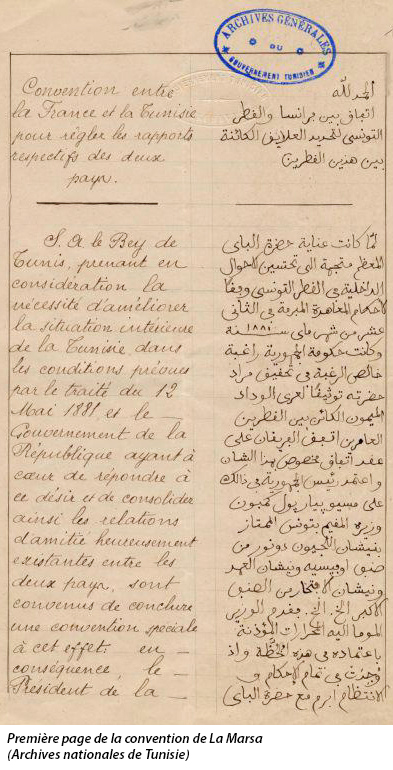 ARCHIVES GÉNÉRALES
DU
GOUVERNEMENT TUNISIEN
Convention entre
la France et la Tunisie
pour régler les rapports
respectifs des deux
pays.
الحمد لله
اتفاق بين فرانسا والقطر
التونسي لتحديد العلايق الكائنة
بين هذين القطرين
S. A le Bey de
Tunis, prenant en
considération la
nécessité d'améliorer
la situation intérieure
de la Tunisie, dans
les conditions prévues
par le traité du 12
Mai 1881, et le
Gouvernement de la
République ayant à
cœur de répondre à
ce désir et de consolider
ainsi les relations
d'amitié heureusement
existantes entre les
deux pays, sont
convenus de conclure
une convention spéciale
à cet effet, en
conséquence, le
Président de la
لما كانت عناية حضرة الباي
المعظم متجهة الى تحسين الاحوال
الداخلية في القطر التونسي وفقا
لاحكام المعاهدة المبرمة في الثاني
عشر من شهر ماي سنة ١٨٨١
وكانت حكومة الجمهورية راغبة
خالص الرغبة في تحقيق مراد
حضرته توثيقا لعرى الوداد
الميمون الكائن بين القطرين
العامرين اتفق الفريقان على
عقد اتفاق مخصوص بهذا الشان
و اعتمد رئيس الجمهورية في ذالك
على مسيو بيار بول كمبون
وزيره المقيم بتونس الممتاز
بنيشان اللجيون دونور من
صنف اوفيسيه ونيشان العهد
ونيشان الافتخار من الصنف
الاكبر الخ الخ فقدم الوزير
الموما اليه المحررات المؤذنة
باعتماده في هذه الخطة واذ
وجدت في تمام الاحكام و
الانتظام ابرم مع حضرة الباي
Première page de la convention de La Marsa
(Archives nationales de Tunisie)